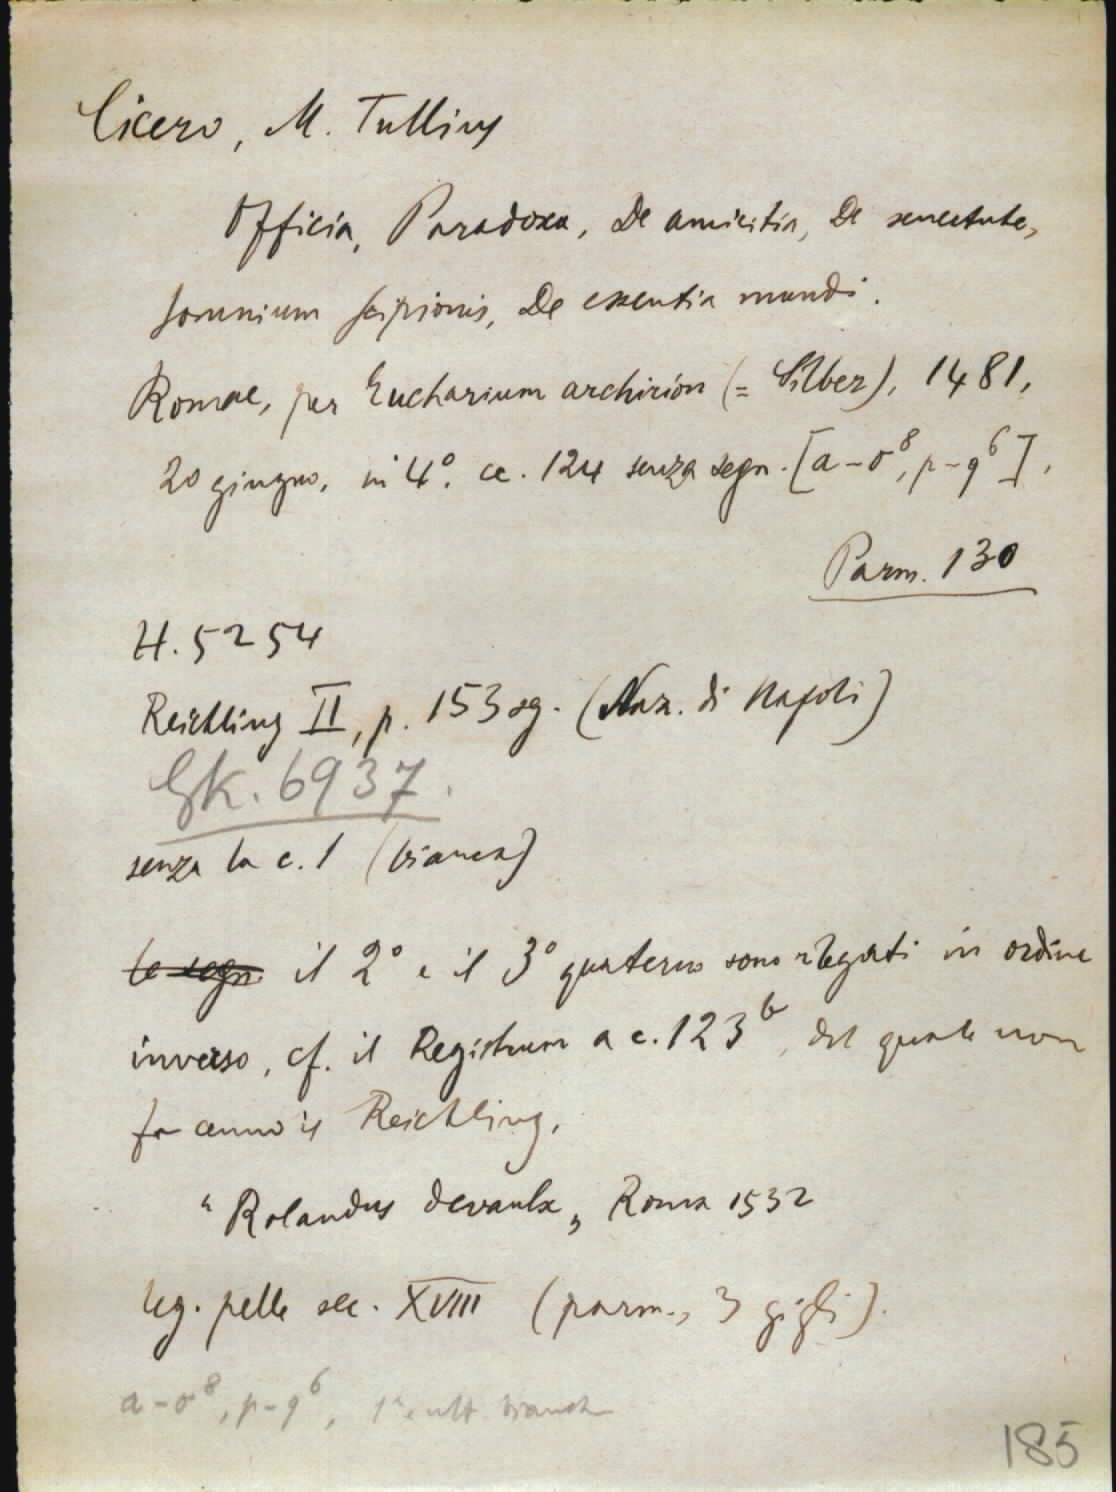 Cicero, M. Tullius
Officia, Paradoxa, De amicitia, De senectute,
Somnium Scipionis, De essentia mundi.
Romae, per Eucharium archirion (= Silber), 1481,
20 giugno, in 4°. cc. 124 senza segn. [a-o⁸, p-q⁶].
Parm. 130
H. 5254
Reichling II, p. 153 sg. (Naz. di Napoli)
Gk. 6937.
senza la c. 1 (bianca)
le segn. il 2° e il 3° quaterno sono rilegati in ordine
inverso, cf. il Registrum a c. 123ᵇ, del quale non
fa cenno il Reichling.
"Rolandus Devaulx„ Roma 1532
leg. pelle sec. XVIII (parm., 3 gigli).
a-o⁸, p-q⁶, 1ª e ult bianche
185